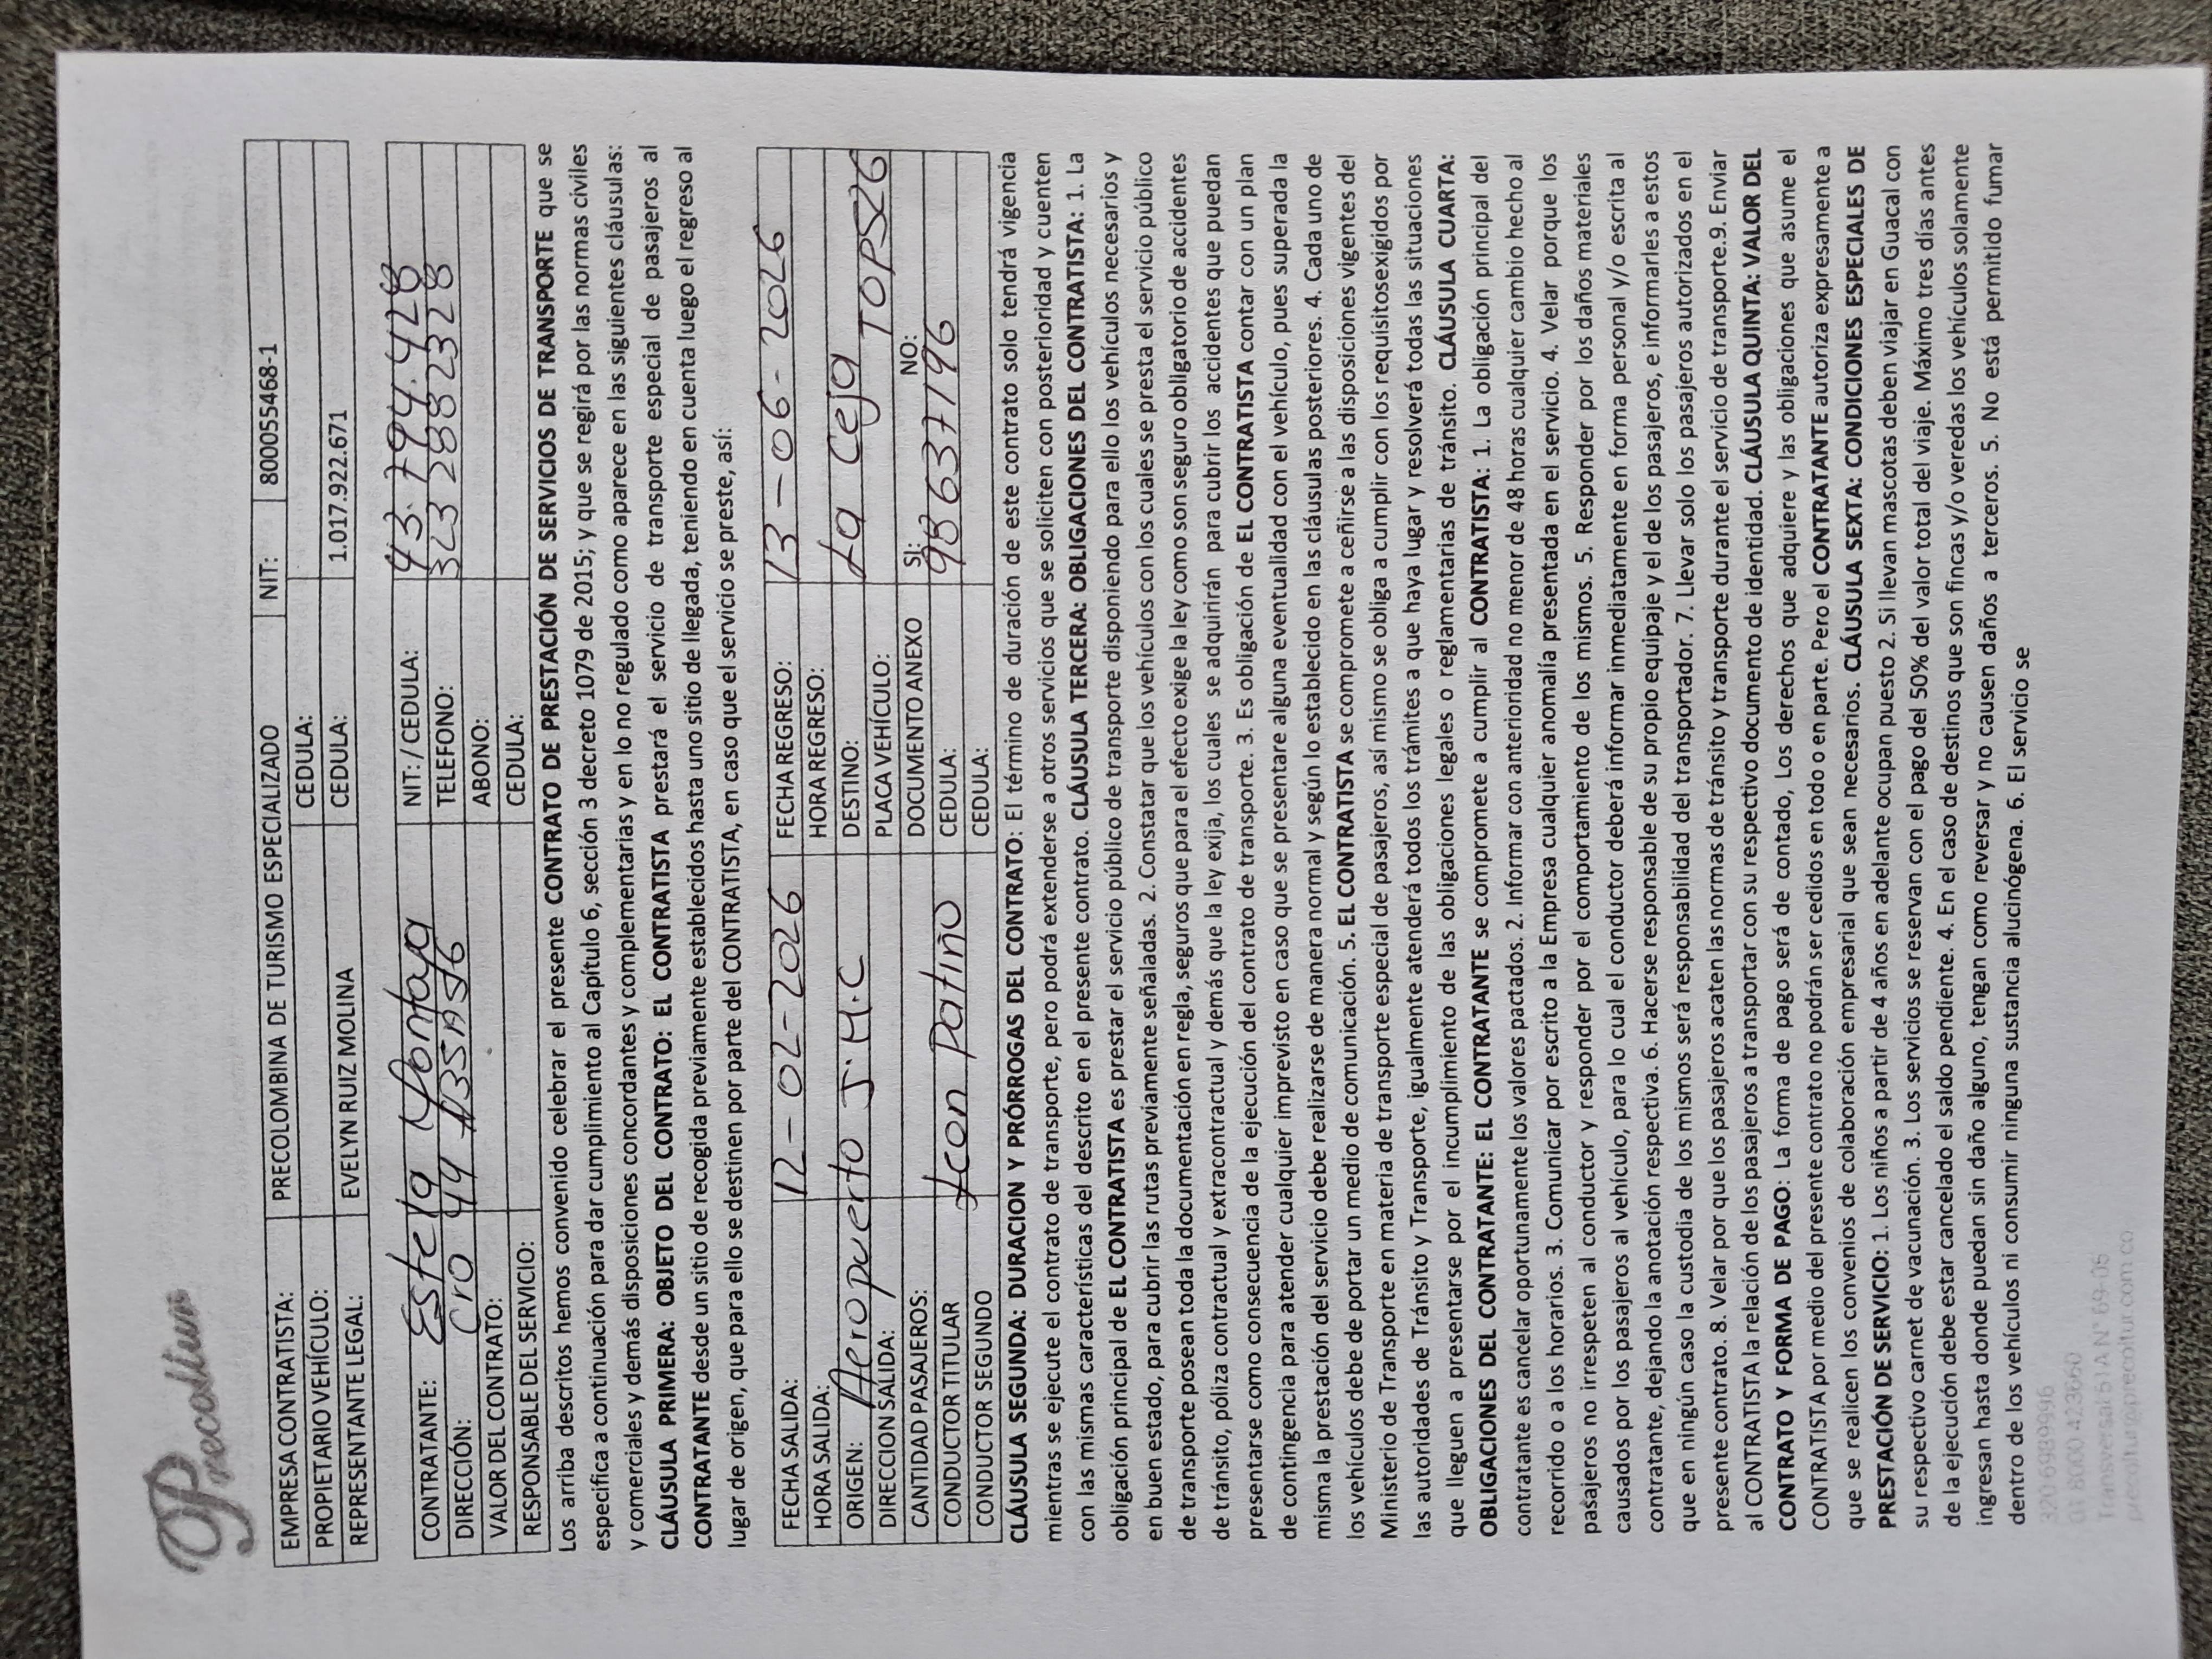 Precoltur
EMPRESA CONTRATISTA: PRECOLOMBINA DE TURISMO ESPECIALIZADO NIT: 800055468-1
PROPIETARIO VEHÍCULO: CEDULA:
REPRESENTANTE LEGAL: EVELYN RUIZ MOLINA CEDULA: 1.017.922.671
CONTRATANTE: Estela Montaya NIT: / CEDULA: 43.794.428
DIRECCIÓN: Cra 49 TELEFONO: 3232882328
VALOR DEL CONTRATO: ABONO:
RESPONSABLE DEL SERVICIO: CEDULA:
Los arriba descritos hemos convenido celebrar el presente CONTRATO DE PRESTACIÓN DE SERVICIOS DE TRANSPORTE que se
especifica a continuación para dar cumplimiento al Capítulo 6, sección 3 decreto 1079 de 2015; y que se regirá por las normas civiles
y comerciales y demás disposiciones concordantes y complementarias y en lo no regulado como aparece en las siguientes cláusulas:
CLÁUSULA PRIMERA: OBJETO DEL CONTRATO: EL CONTRATISTA prestará el servicio de transporte especial de pasajeros al
CONTRATANTE desde un sitio de recogida previamente establecidos hasta uno sitio de llegada, teniendo en cuenta luego el regreso al
lugar de origen, que para ello se destinen por parte del CONTRATISTA, en caso que el servicio se preste, así:
FECHA SALIDA: 12-02-2026 FECHA REGRESO: 13-06-2026
HORA SALIDA: HORA REGRESO:
ORIGEN: Aeropuerto J.M.C DESTINO: La Ceja
DIRECCION SALIDA: PLACA VEHÍCULO: TOP526
CANTIDAD PASAJEROS: DOCUMENTO ANEXO SI: NO:
CONDUCTOR TITULAR Leon Patiño CEDULA: 98637196
CONDUCTOR SEGUNDO CEDULA:
CLÁUSULA SEGUNDA: DURACION Y PÓRROGAS DEL CONTRATO: El término de duración de este contrato solo tendrá vigencia
mientras se ejecute el contrato de transporte, pero podrá extenderse a otros servicios que se soliciten con posterioridad y cuenten
con las mismas características del descrito en el presente contrato. CLÁUSULA TERCERA: OBLIGACIONES DEL CONTRATISTA: 1. La
obligación principal de EL CONTRATISTA es prestar el servicio público de transporte disponiendo para ello los vehículos necesarios y
en buen estado, para cubrir las rutas previamente señaladas. 2. Constatar que los vehículos con los cuales se presta el servicio público
de transporte posean toda la documentación en regla, seguros que para el efecto exige la ley como son seguro obligatorio de accidentes
de tránsito, póliza contractual y extracontractual y demás que la ley exija, los cuales se adquirirán para cubrir los accidentes que puedan
presentarse como consecuencia de la ejecución del contrato de transporte. 3. Es obligación de EL CONTRATISTA contar con un plan
de contingencia para atender cualquier imprevisto en caso que se presentare alguna eventualidad con el vehículo, pues superada la
misma la prestación del servicio debe realizarse de manera normal y según lo establecido en las cláusulas posteriores. 4. Cada uno de
los vehículos debe de portar un medio de comunicación. 5. EL CONTRATISTA se compromete a ceñirse a las disposiciones vigentes del
Ministerio de Transporte en materia de transporte especial de pasajeros, así mismo se obliga a cumplir con los requisitosexigidos por
las autoridades de Tránsito y Transporte, igualmente atenderá todos los trámites a que haya lugar y resolverá todas las situaciones
que lleguen a presentarse por el incumplimiento de las obligaciones legales o reglamentarias de tránsito. CLÁUSULA CUARTA:
OBLIGACIONES DEL CONTRATANTE: EL CONTRATANTE se compromete a cumplir al CONTRATISTA: 1. La obligación principal del
contratante es cancelar oportunamente los valores pactados. 2. Informar con anterioridad no menor de 48 horas cualquier cambio hecho al
recorrido o a los horarios. 3. Comunicar por escrito a la Empresa cualquier anomalía presentada en el servicio. 4. Velar porque los
pasajeros no irrespeten al conductor y responder por el comportamiento de los mismos. 5. Responder por los daños materiales
causados por los pasajeros al vehículo, para lo cual el conductor deberá informar inmediatamente en forma personal y/o escrita al
contratante, dejando la anotación respectiva. 6. Hacerse responsable de su propio equipaje y el de los pasajeros, e informarles a estos
que en ningún caso la custodia de los mismos será responsabilidad del transportador. 7. Llevar solo los pasajeros autorizados en el
presente contrato. 8. Velar por que los pasajeros acaten las normas de tránsito y transporte durante el servicio de transporte.9. Enviar
al CONTRATISTA la relación de los pasajeros a transportar con su respectivo documento de identidad. CLÁUSULA QUINTA: VALOR DEL
CONTRATO Y FORMA DE PAGO: La forma de pago será de contado, Los derechos que adquiere y las obligaciones que asume el
CONTRATISTA por medio del presente contrato no podrán ser cedidos en todo o en parte. Pero el CONTRATANTE autoriza expresamente a
que se realicen los convenios de colaboración empresarial que sean necesarios. CLÁUSULA SEXTA: CONDICIONES ESPECIALES DE
PRESTACIÓN DE SERVICIO: 1. Los niños a partir de 4 años en adelante ocupan puesto 2. Si llevan mascotas deben viajar en Guacal con
su respectivo carnet de vacunación. 3. Los servicios se reservan con el pago del 50% del valor total del viaje. Máximo tres días antes
de la ejecución debe estar cancelado el saldo pendiente. 4. En el caso de destinos que son fincas y/o veredas los vehículos solamente
ingresan hasta donde puedan sin daño alguno, tengan como reversar y no causen daños a terceros. 5. No está permitido fumar
dentro de los vehículos ni consumir ninguna sustancia alucinógena. 6. El servicio se
320 6989946
01 8000 423660
Transversal 51A N° 69-05
precoltur@precoltur.com.co